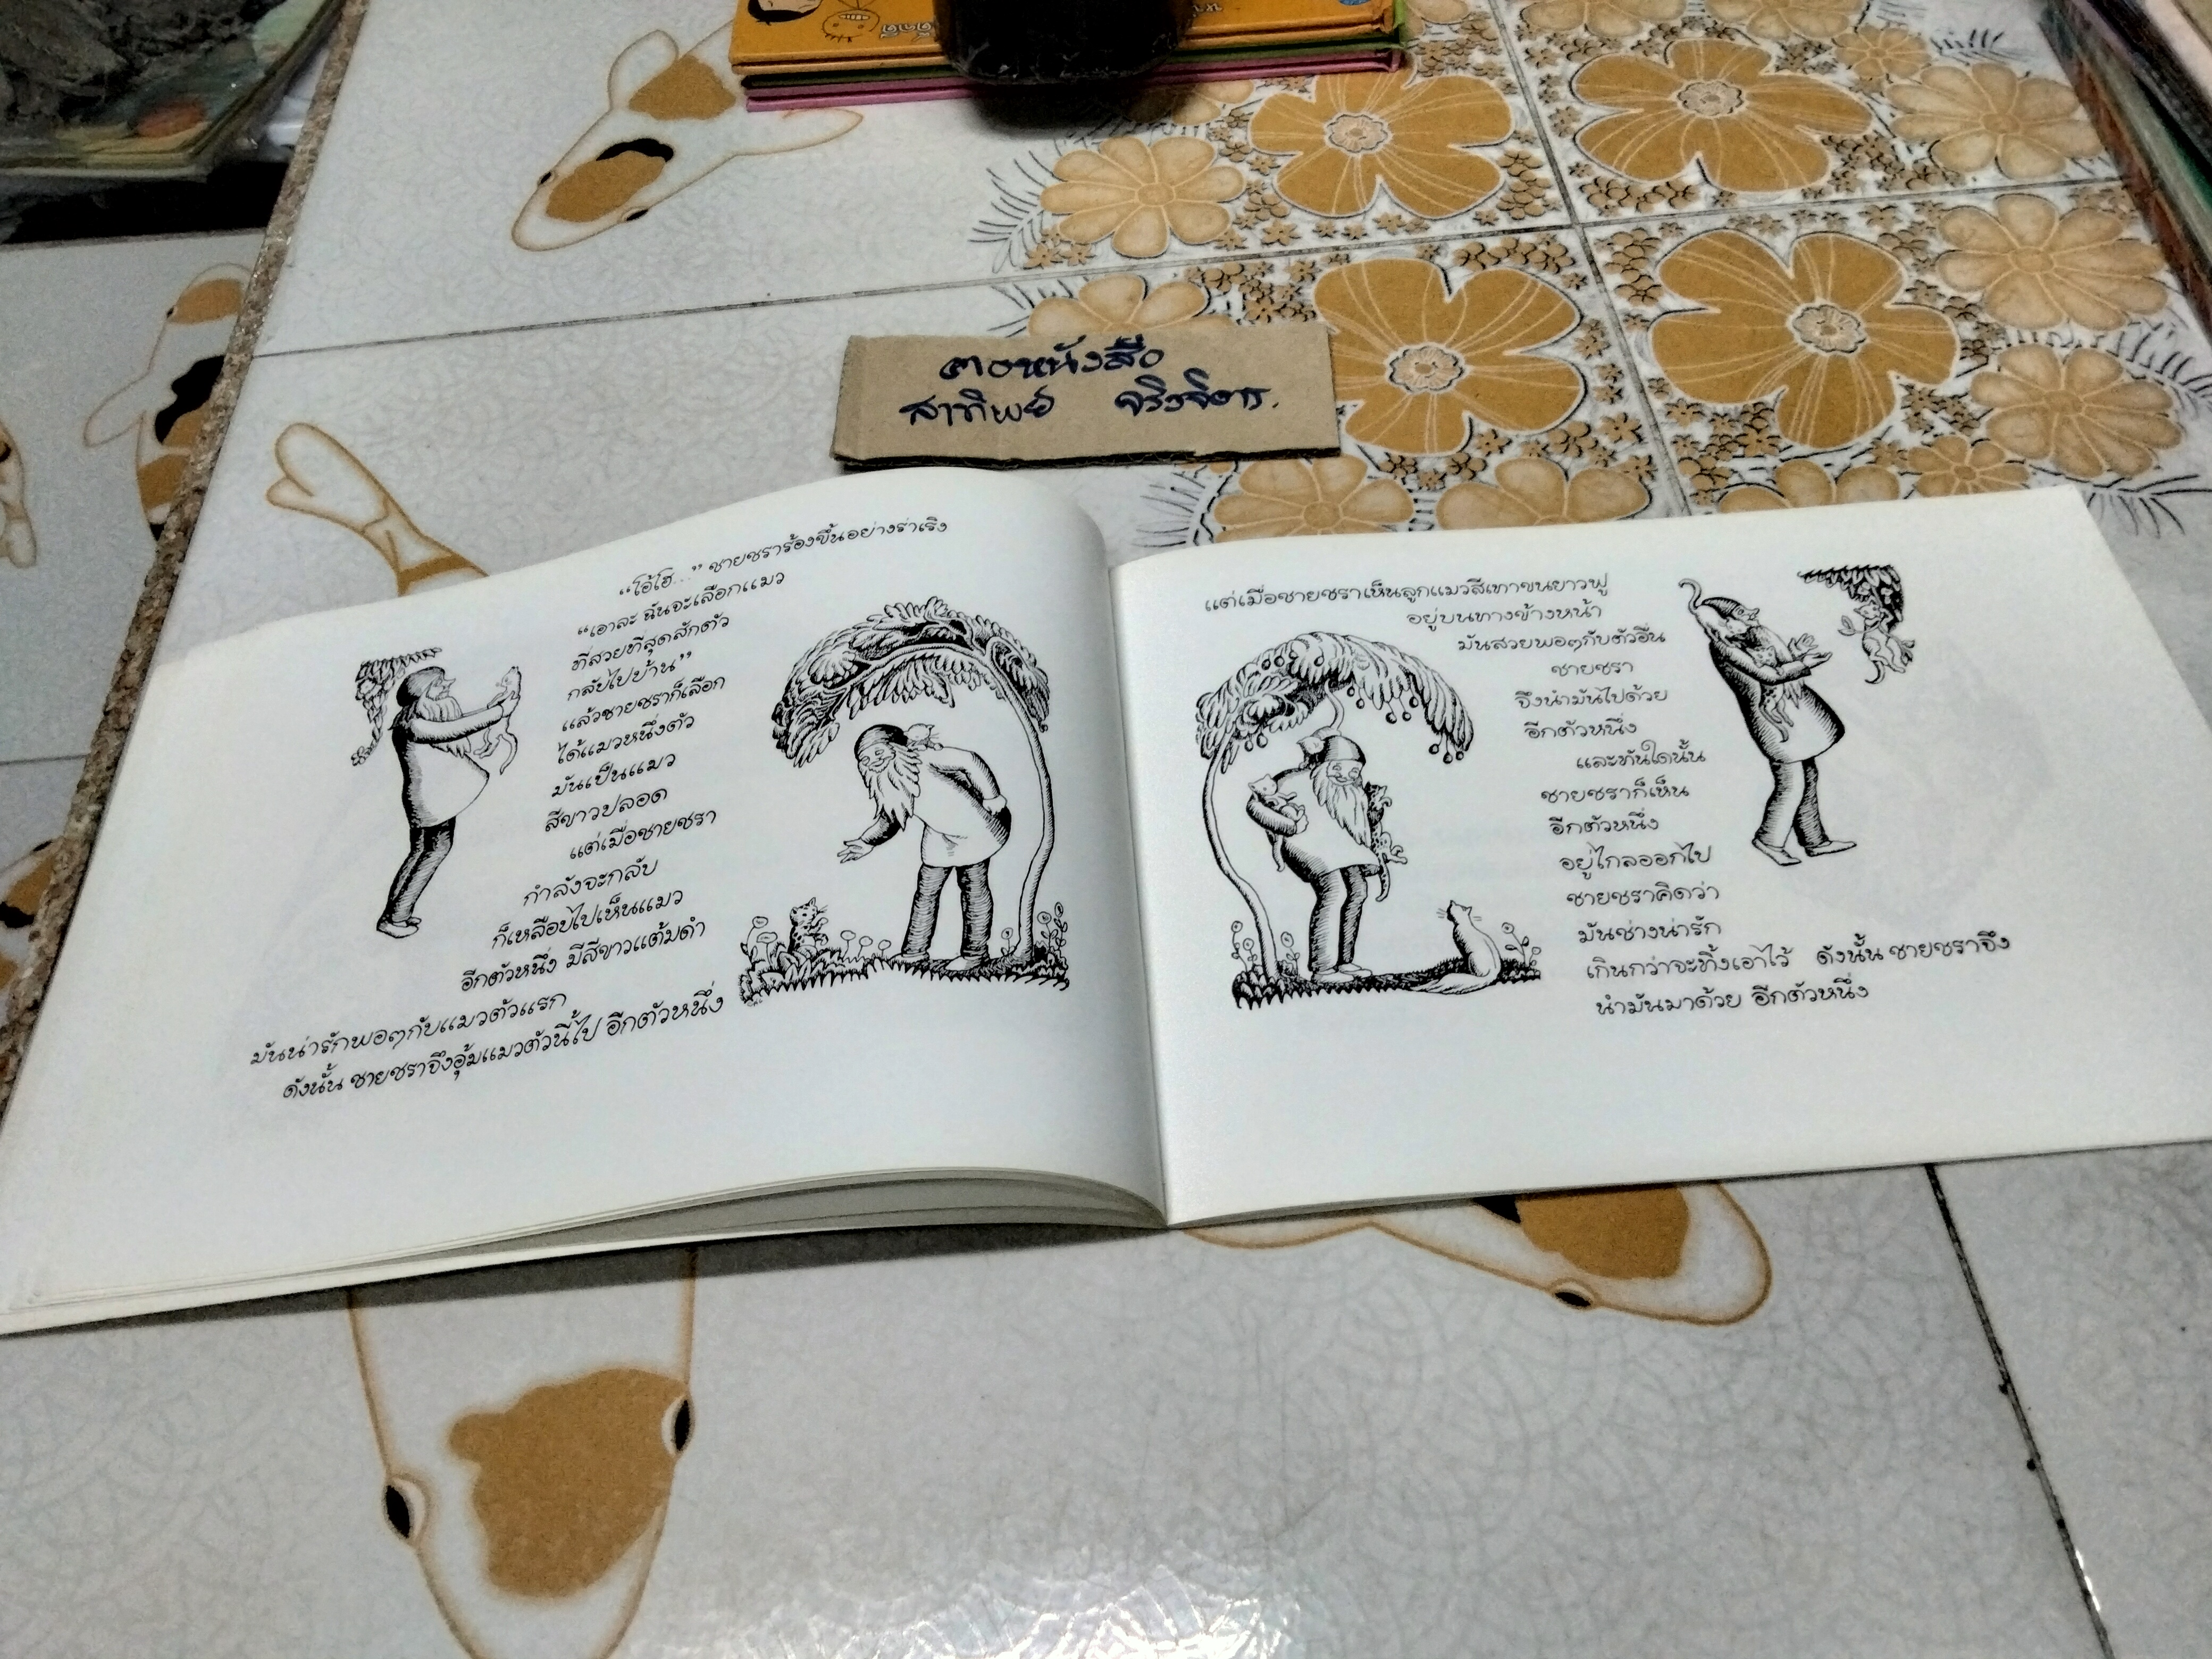 ฅอหนังสือ
สาทิพย์ จริงจิตร.
“โอ้โฮ...” ชายชราร้องขึ้นอย่างร่าเริง
“เอาละ ฉันจะเลือกแมว
ที่สวยที่สุดสักตัว
กลับไปบ้าน”
แล้วชายชราก็เลือก
ได้แมวหนึ่งตัว
มันเป็นแมว
สีขาวปลอด
แต่เมื่อชายชรา
กำลังจะกลับ
ก็เหลือบไปเห็นแมว
อีกตัวหนึ่ง มีสีขาวแต้มดำ
มันน่ารักพอๆกับแมวตัวแรก
ดังนั้น ชายชราจึงอุ้มแมวตัวนี้ไป อีกตัวหนึ่ง
แต่เมื่อชายชราเห็นลูกแมวสีเทาขนยาวฟู
อยู่บนทางข้างหน้า
มันสวยพอๆกับตัวอื่น
ชายชรา
จึงนำมันไปด้วย
อีกตัวหนึ่ง
และทันใดนั้น
ชายชราก็เห็น
อีกตัวหนึ่ง
อยู่ไกลออกไป
ชายชราคิดว่า
มันช่างน่ารัก
เกินกว่าจะทิ้งเอาไว้ ดังนั้น ชายชราจึง
นำมันมาด้วย อีกตัวหนึ่ง